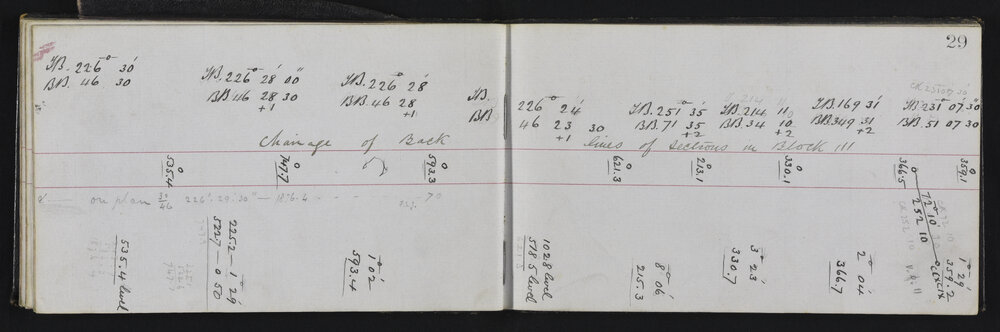 29
FB. 226° 30'
BB. 46 30
FB. 226° 28' 00"
BB. 46 28 30
+1
FB. 226° 28'
BB. 46 28
+1
FB. 226° 24'
BB. 46 23 30
+1
FB. 251° 35'
BB. 71 35
+2
FB. 214 11
BB. 34 10
+2
FB. 169 31'
BB 349 31
+2
FB. 231° 07 30"
BB. 51 07 30
Chainage of Back lines of Sections in Block III
535.4
747.7
593.3
621.3
213.1
330.1
366.5
359.1
on plan 30/46 226°. 29'. 30" — 1876.4
72° 10
252 10
535.4 level
2252 — 1° 29'
5227 — 0 50
1° 02'
593.4
1028 level
518 5 level
8° 06'
215.3
3° 23'
330.7
2° 04'
366.7
1° 29'
359.2